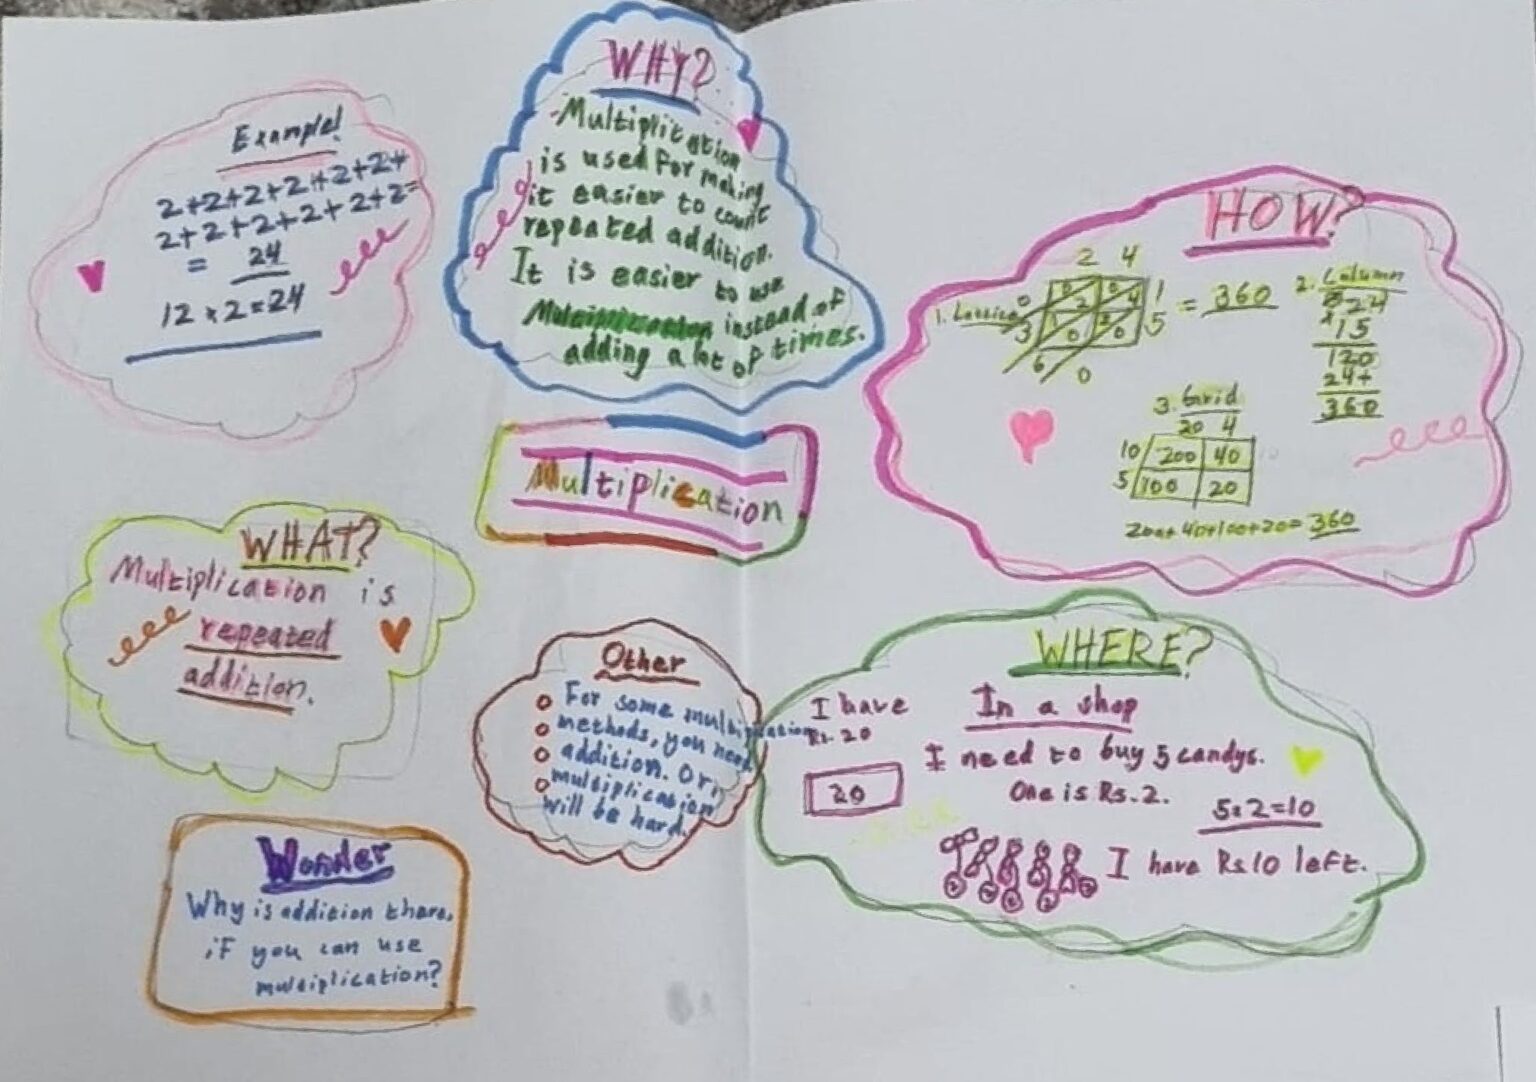 Example!
2+2+2+2+2+2+
2+2+2+2+2+2=
= 24
12 x 2=24
WHY?
-Multiplication
is used for making
it easier to count
repeated addition.
It is easier to use
Multiplication instead of
adding a lot of times.
HOW?
1. Lattice
2 4
0 0 0 1
2 4
3 1 2 5
0 0
6
0
= 360
2. Column
2
24
15
120
24+
360
3. Grid
20 4
10 200 40
5 100 20
200+40+100+20=360
Multiplication
WHAT?
Multiplication is
repeated
addition.
Other
For some multiplication
methods, you need
addition. Or,
multiplication
will be hard.
WHERE?
In a shop
I have
Rs. 20
20
I need to buy 5 candys.
One is Rs. 2.
5x2=10
2 2 2 2 2
I have Rs10 left.
Wonder
Why is addition there,
if you can use
multiplication?